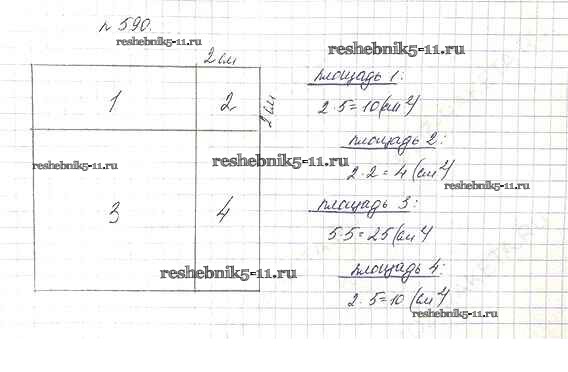 № 590.
reshebnik5-11.ru
2 см
reshebnik5-11.ru
1
2
2 см
reshebnik5-11.ru
reshebnik5-11.ru
3
4
reshebnik5-11.ru
площадь 1:
2·5=10(см²)
площадь 2:
2·2=4 (см²)
reshebnik5-11.ru
площадь 3:
5·5=25(см²)
площадь 4:
2·5=10 (см²)
reshebnik5-11.ru